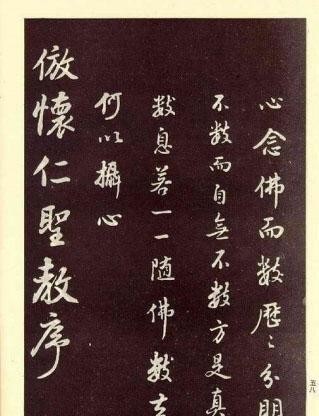 心念佛而數歷〻分明
不數而自無不數方是真
數息善一一隨佛數去
何以攝心
倣懷仁聖教序
五八